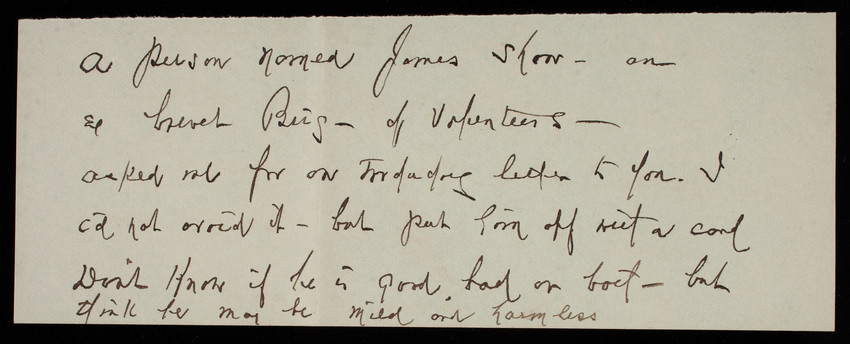 A person named James Shaw - an
ex brevet Brig - of Volunteers -
asked me for an introductory letter to you. I
c'd not avoid it - but put him off with a card
Don't know if he is good, bad or both - but
think he may be mild and harmless